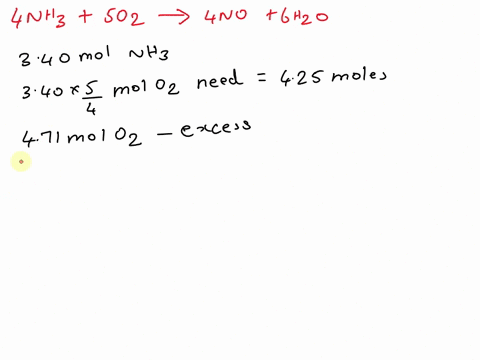 4NH3 + 5O2 → 4NO + 6H2O
3.40 mol NH3
3.40 × 5/4 mol O2 need = 4.25 moles
4.71 mol O2 - excess